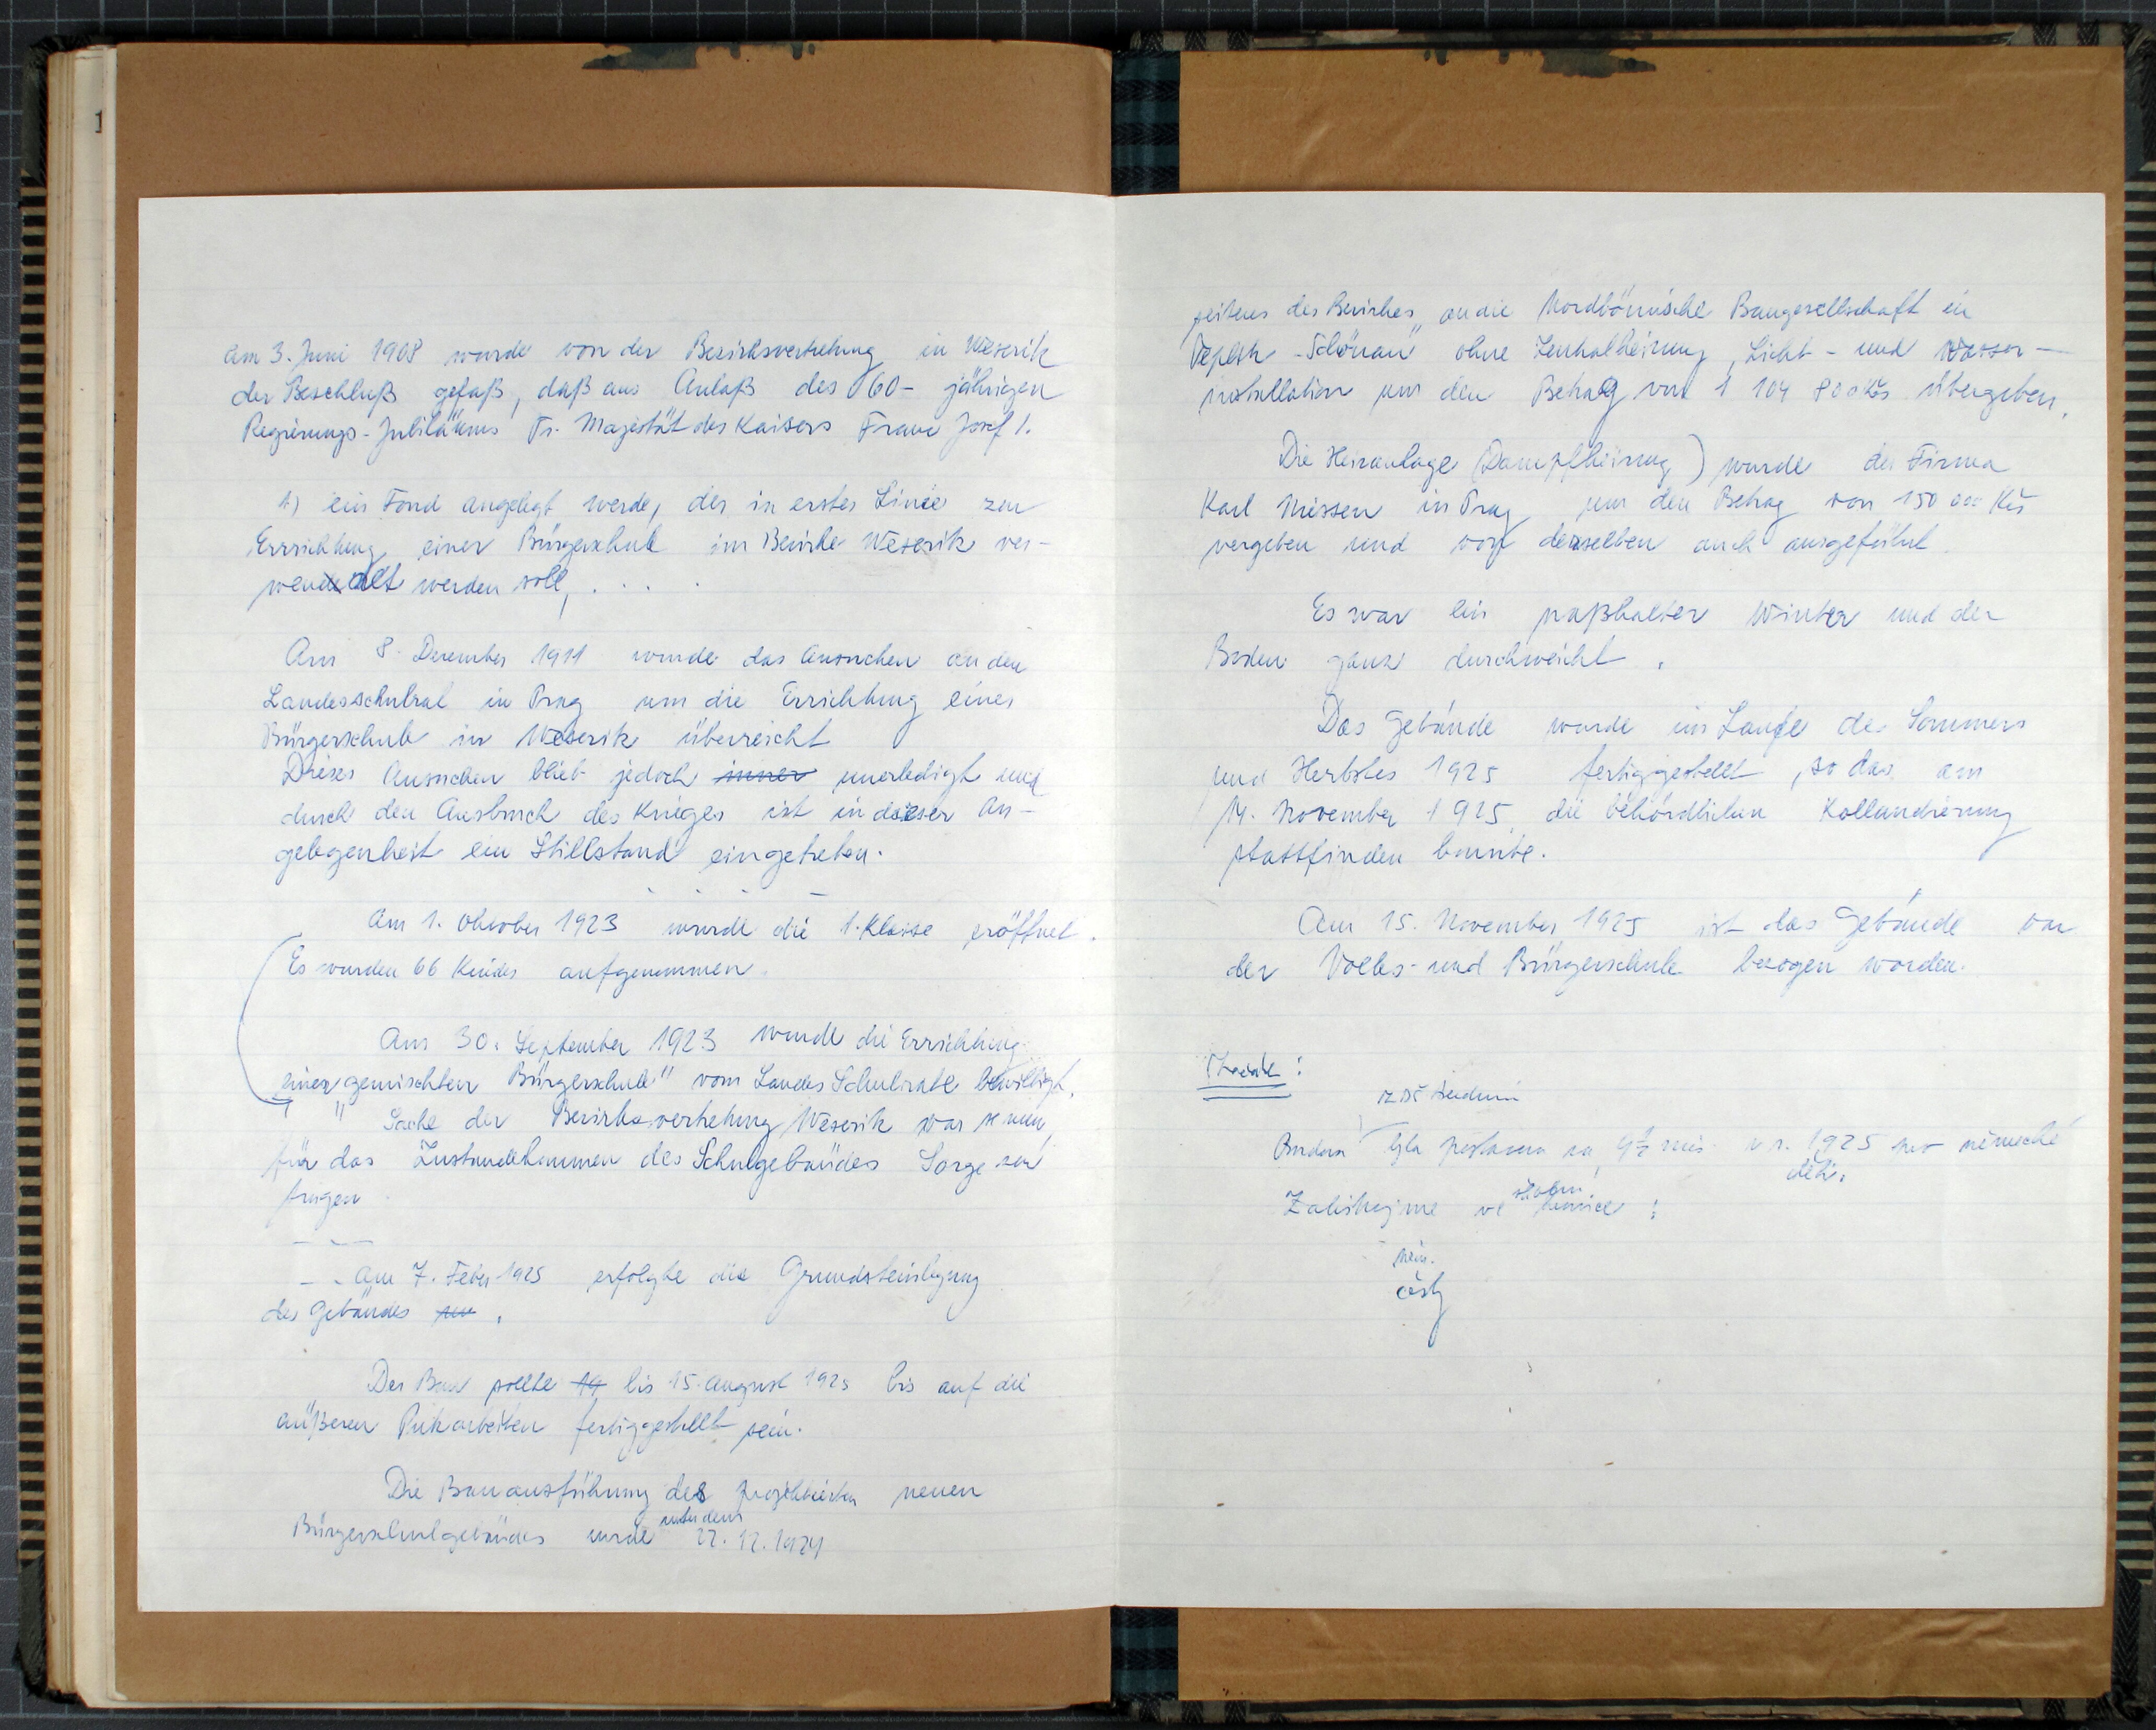 1
Am 3. Juni 1908 wurde von der Bezirksvertretung in Weserik
der Beschluß gefaß, daß aus Anlaß des 60-jährigen
Regierungs-Jubiläums Sr. Majestät des Kaisers Franz Josef I.
1) ein Fond angelegt werde, der in erster Linie zur
Errichtung einer Bürgerschule im Bezirke Weserik ver-
wendet werden soll, . . . .
Am 8. Dezember 1911 wurde das Ansuchen an den
Landesschulrat in Prag um die Errichtung einer
Bürgerschule in Weserik überreicht
Dieses Ansuchen blieb jedoch immer unerledigt und
durch den Ausbruch des Krieges ist in dieser An-
gelegenheit ein Stillstand eingetreten.
Am 1. Oktober 1923 wurde die 1. Klasse eröffnet.
Es wurden 66 Kinder aufgenommen.
Am 30. September 1923 wurde die Errichtung
einer gemischten Bürgerschule" vom Landes Schulrate bewilligt.
" Sache der Bezirksvertretung Weserik war es nun
für das Zustandekommen des Schulgebäudes Sorge zu
tragen
- - Am 7. Feber 1925 erfolgte die Grundsteinlegung
des Gebäudes .
Der Bau sollte 19 bis 15. August 1925 bis auf die
äußeren Putzarbeiten fertiggestellt sein.
Die Bauausführung des projektierten neuen
unter dem
Bürgerschulgebäudes wurde 22. 12. 1924
seitens des Bezirkes an die Nordbömische Baugesellschaft in
Teplitz-Schönau" ohne Zentralheizung, Licht- und Wasser-
installation um den Betrag von 1 104 800 Kčs übergeben.
Die Heizanlage (Dampfheizung) wurde der Firma
Karl Niessen in Prag um den Betrag von 150 000 Kčs
vergeben und von derselben auch ausgeführt
Es war ein naßkalter Winter und der
Boden ganz durchweicht.
Das Gebäude wurde im Laufe des Sommers
und Herbstes 1925 fertiggestellt, so das am
14. November 1925 die behördlichen Kollaudierung
stattfinden konnte.
Am 15. November 1925 ist das Gebäude von
der Volks- und Bürgerschule bezogen worden.
:
ZDŠ
Budova byla postavena za 9½ měs v r. 1925 pro německé
děti.
ve :
něm.
česky